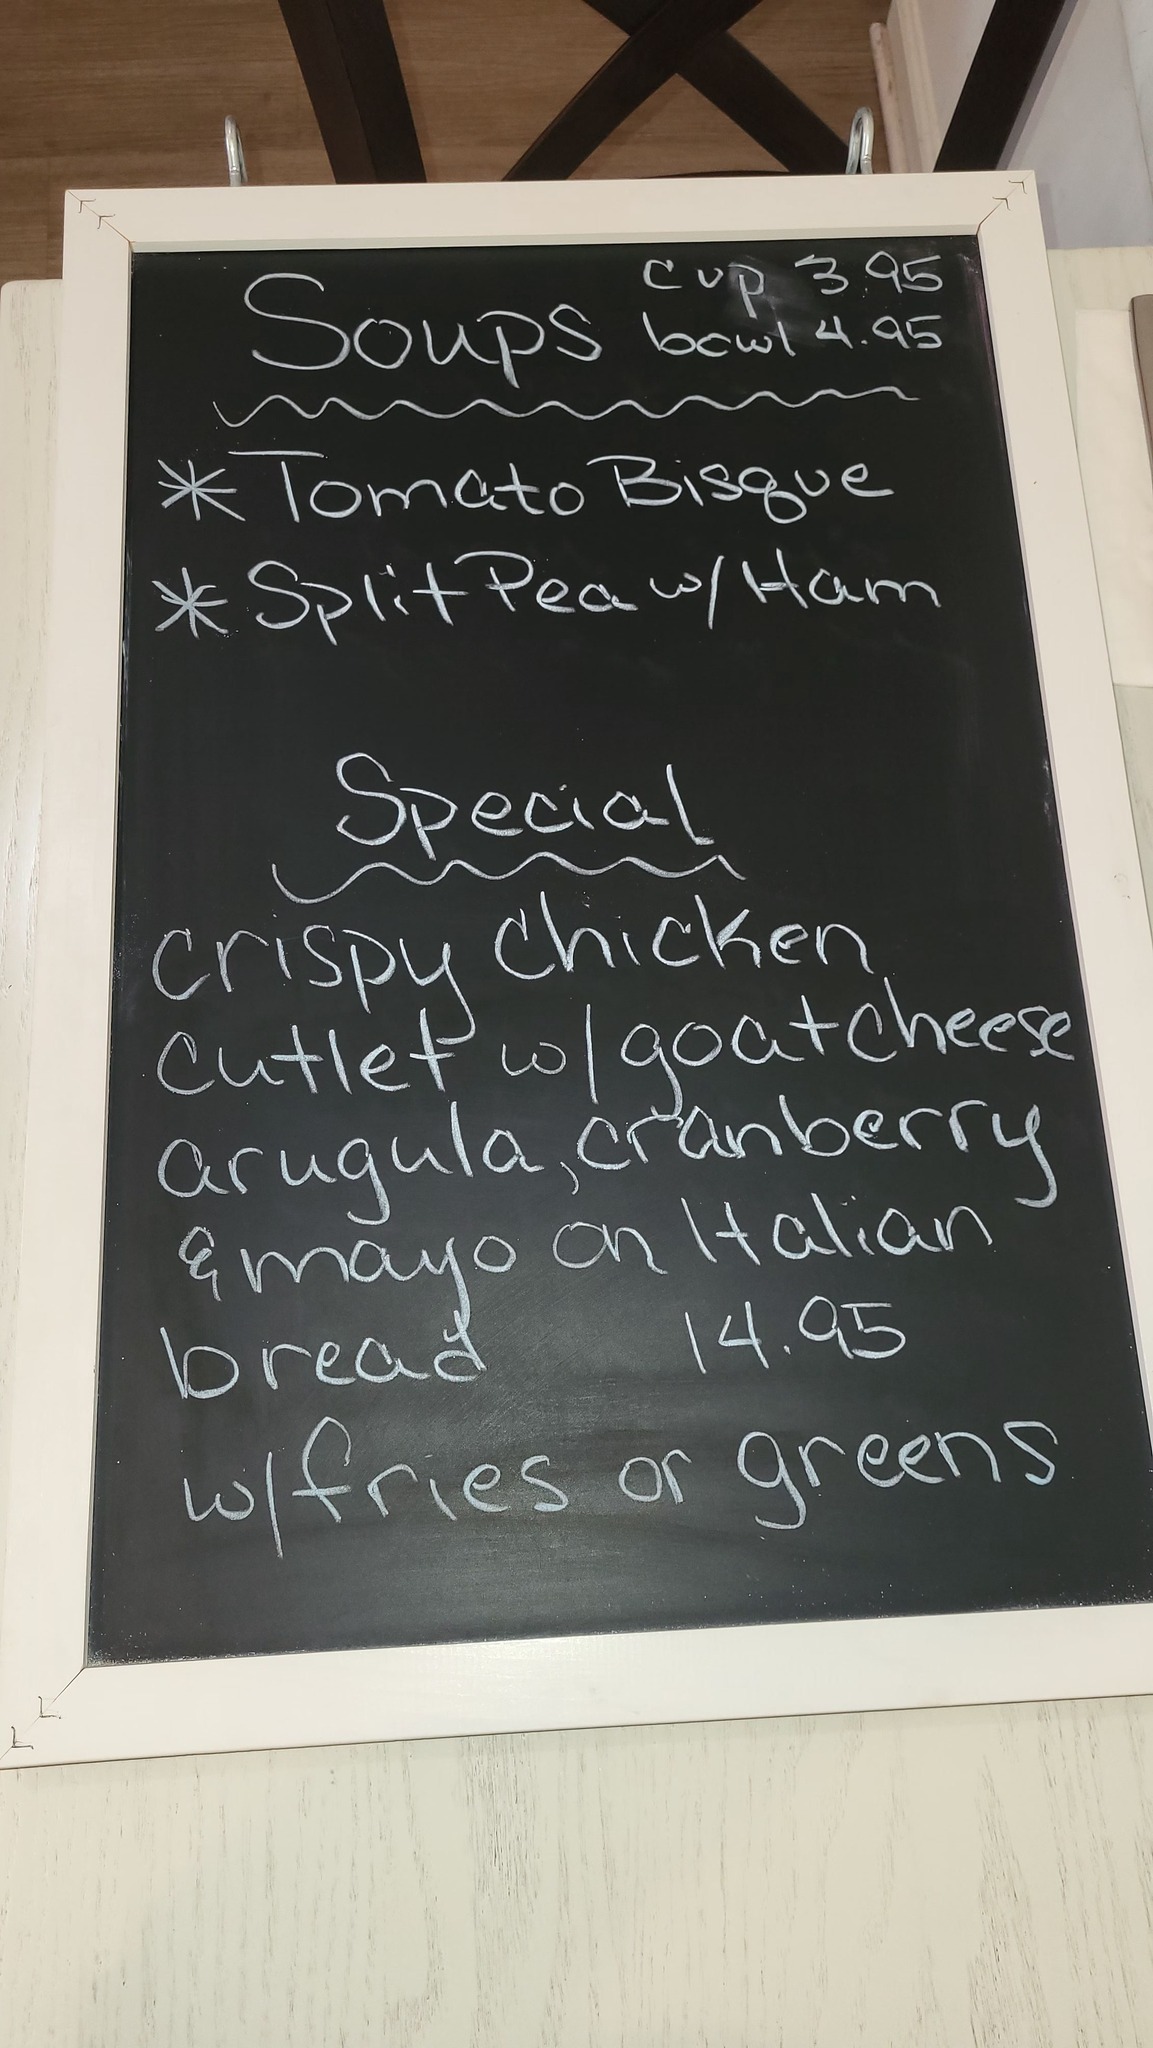 Soups cup 3.95
bowl 4.95
* Tomato Bisque
* Split Pea w/ Ham
Special
crispy chicken
cutlet w/ goat cheese
arugula, cranberry
& mayo on Italian
bread 14.95
w/ fries or greens